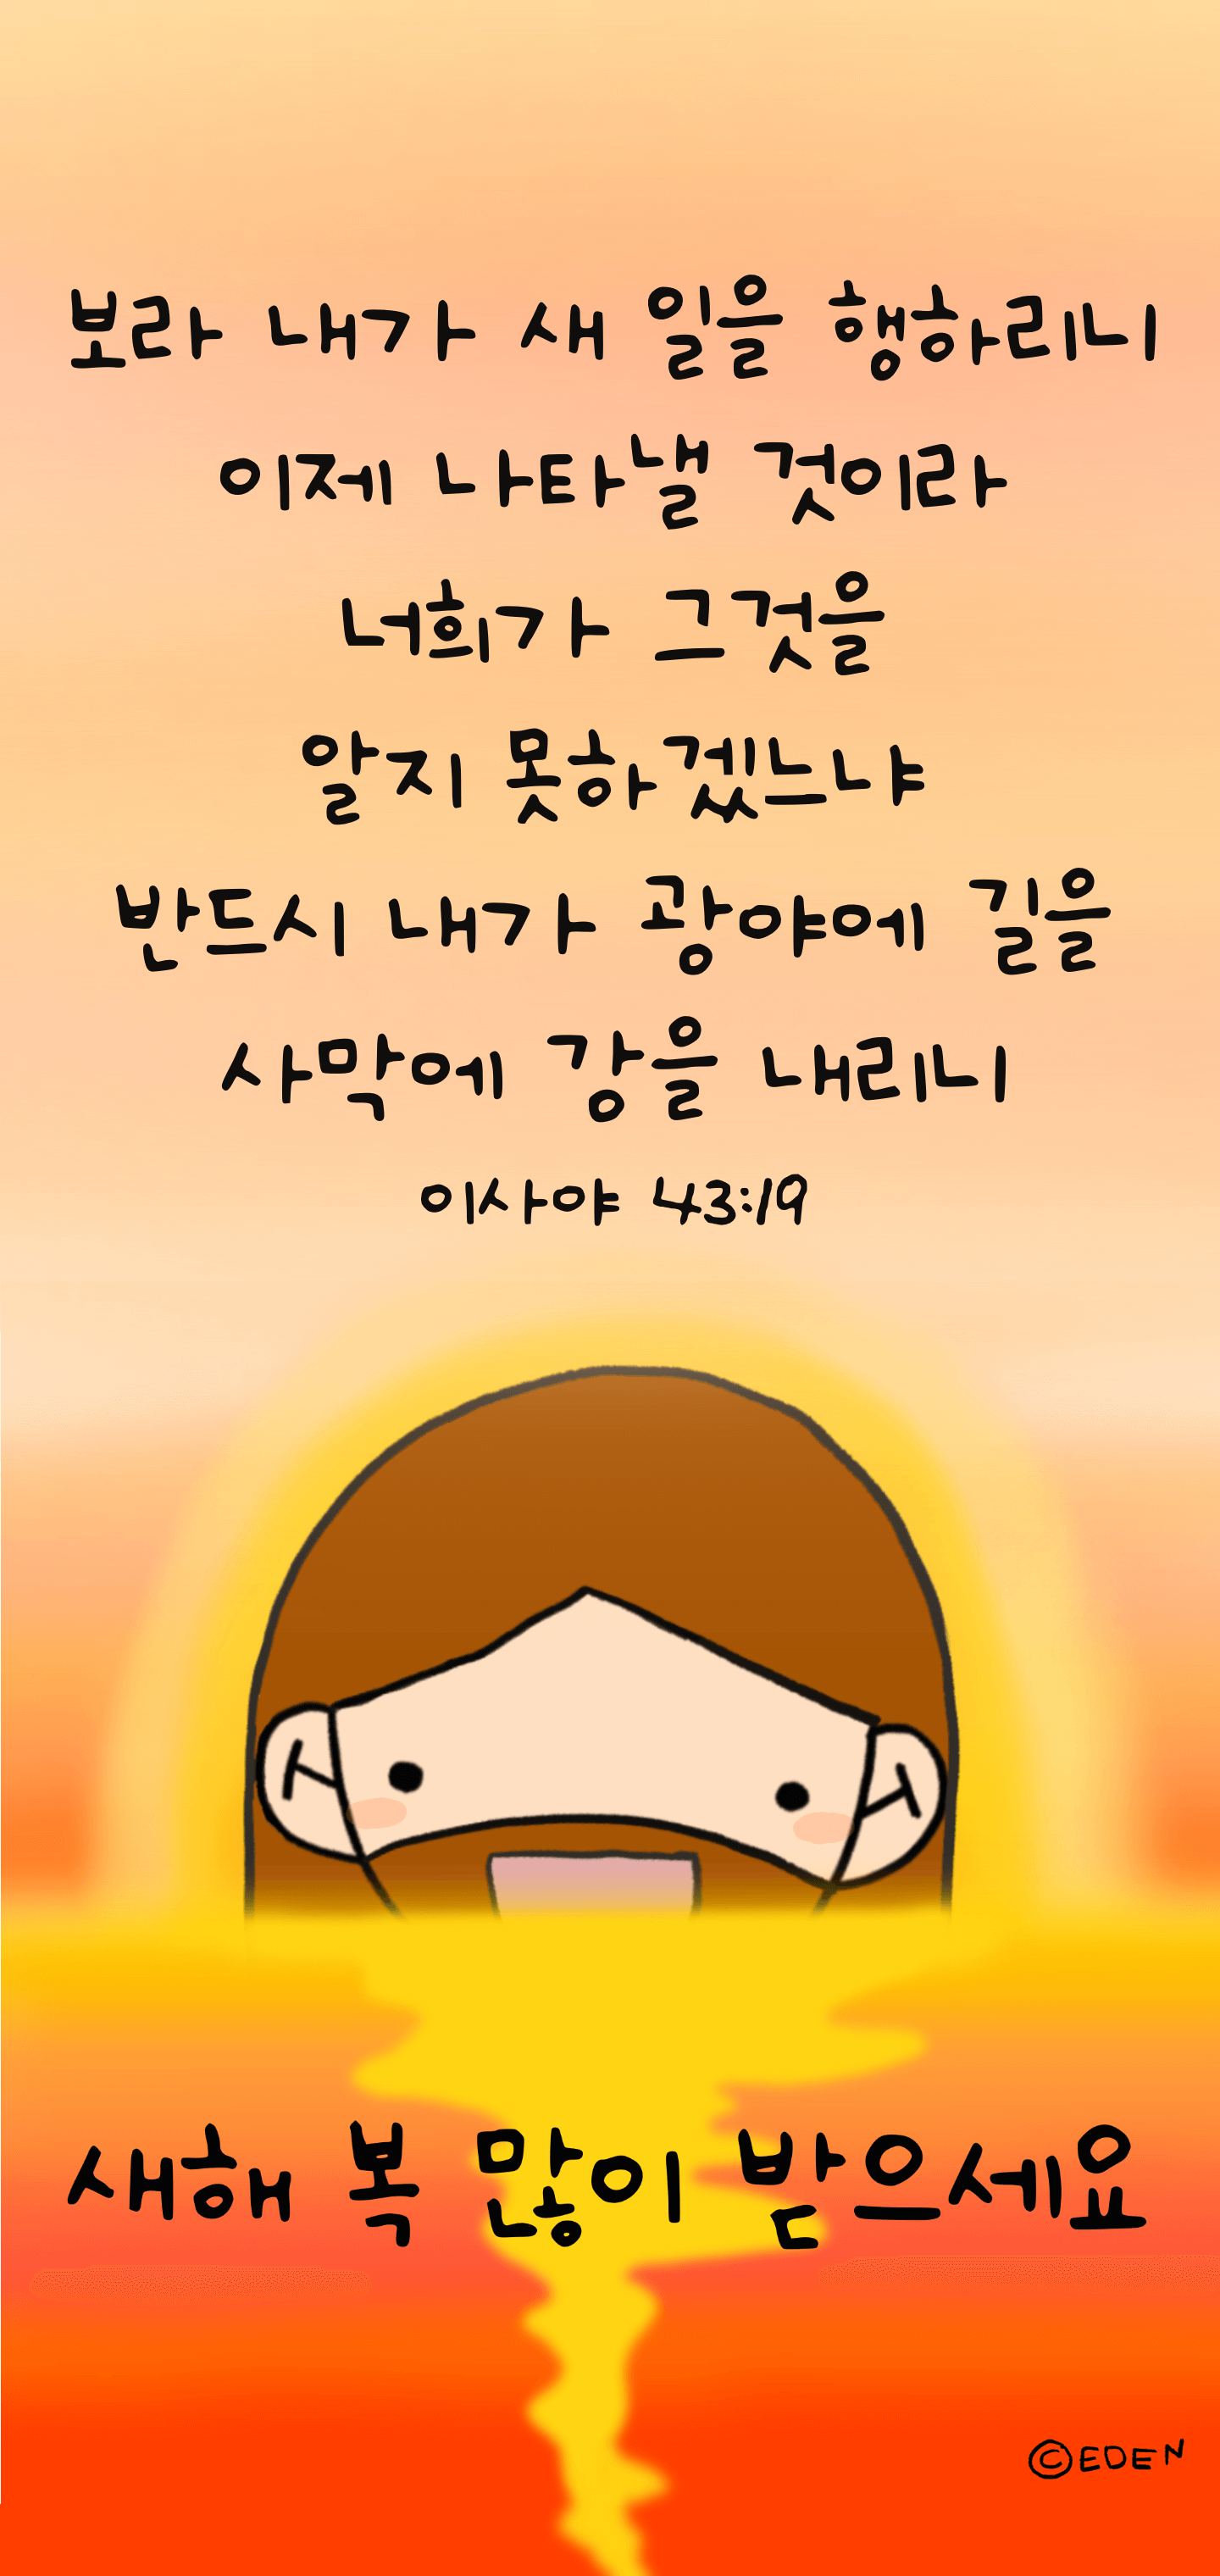 보라 내가 새 일을 행하리니
이제 나타낼 것이라
너희가 그것을
알지 못하겠느냐
반드시 내가 광야에 길을
사막에 강을 내리니
이사야 43:19
새해 복 많이 받으세요
©EDEN